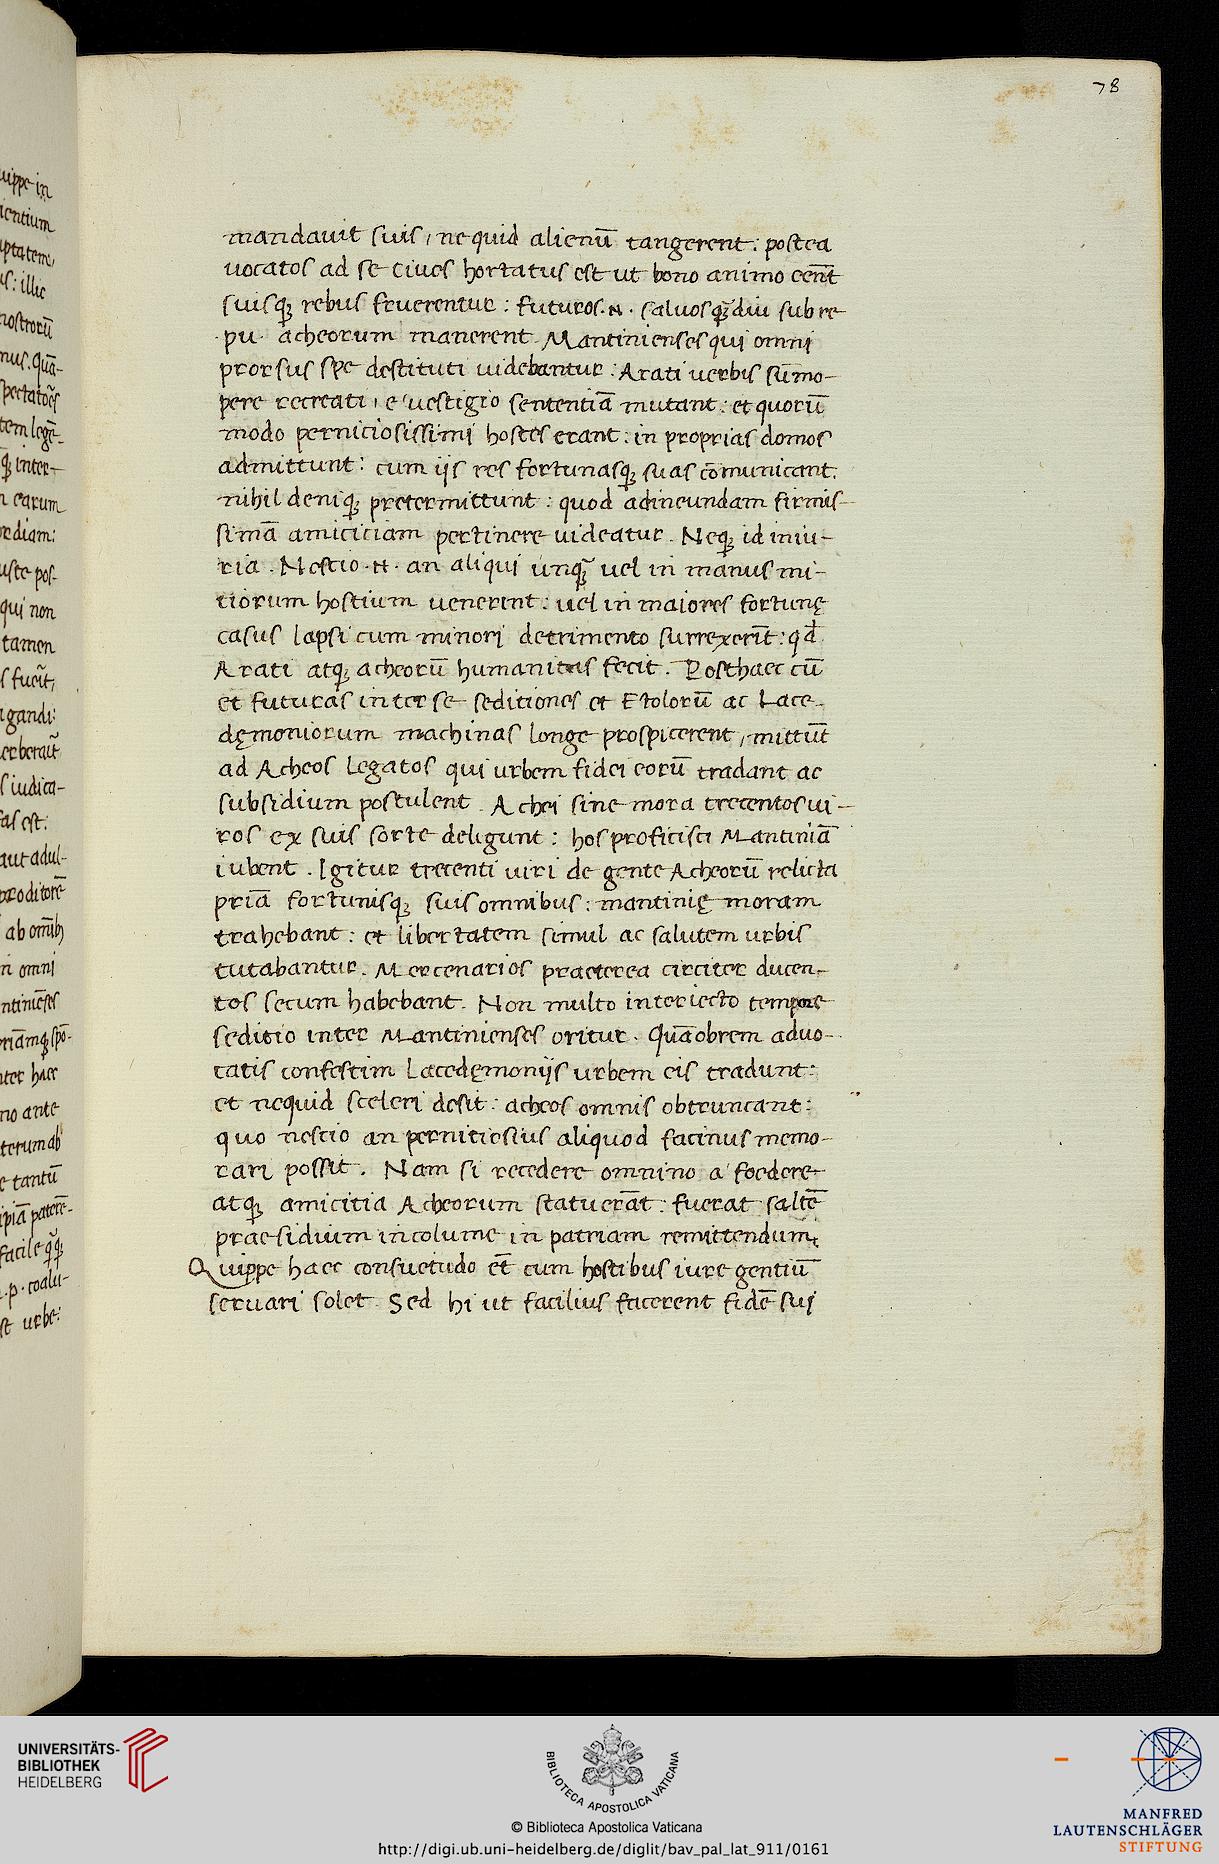 78
mandauit suis, ne quid alienū tangerent: postea
uocatos ad se ciues hortatus est ut bono animo eēnt
suisq; rebus fruerentur: futuros .N. saluos q̄diu sub re
pu. acheorum manerent. Mantinienses qui omni
prorsus spe destituti uidebantur: Arati uerbis sūmo-
pere recreati, e uestigio sententiā mutant: et quorū
modo perniciosissimi hostes erant: in proprias domos
admittunt: cum ijs res fortunasq; suas cōmunicant.
nihil deniq; pretermittunt: quod ad ineundam firmis-
simā amiciciam pertinere uideatur. Neq; id iniu-
ria. Nescio .N. an aliqui unq̄ uel in manus mi-
tiorum hostium uenerent: uel in maiores fortunę
casus lapsi cum minori detrimento surrexerīt: qđ
Arati atq; acheorū humanitas fecit. Posthaec cū
et futuras inter se seditiones et Etolorū ac Lace-
dęmoniorum machinas longe prospicerent, mittūt
ad Acheos legatos qui urbem fidei eorū tradant ac
subsidium postulent. Achei sine mora trecentos ui-
ros ex suis sorte deligunt: hos proficisci Mantiniā
iubent. Igitur trecenti uiri de gente Acheorū relicta
priā fortunisq; suis omnibus: mantinię moram
trahebant: et libertatem simul ac salutem urbis
tutabantur. Mercenarios praeterea circiter ducen-
tos secum habebant. Non multo interiecto tempore
seditio inter Mantinienses oritur. Quāobrem aduo-
catis confestim Lacedęmonijs urbem eis tradunt:
et nequid sceleri desit: acheos omnis obtruncant:
quo nescio an pernitiosius aliquod facinus memo-
rari possit. Nam si recedere omnino a foedere
atq; amicitia Acheorum statuerāt: fuerat saltē
praesidium incolume in patriam remittendum.
Quippe haec consuetudo ēt cum hostibus iure gentiū
seruari solet. Sed hi ut facilius facerent fidē sui
UNIVERSITÄTS-
BIBLIOTHEK
HEIDELBERG
BIBLIOTECA APOSTOLICA VATICANA
© Biblioteca Apostolica Vaticana
http://digi.ub.uni-heidelberg.de/diglit/bav_pal_lat_911/0161
MANFRED
LAUTENSCHLÄGER
STIFTUNG